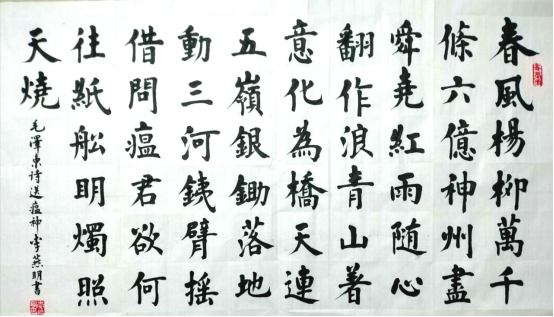 春風楊柳萬千
條六億神州盡
舜堯紅雨隨心
翻作浪青山著
意化為橋天連
五嶺銀鋤落地
動三河鐵臂摇
借問瘟君欲何
往紙船明燭照
天燒
毛澤東诗送瘟神 李燕明書